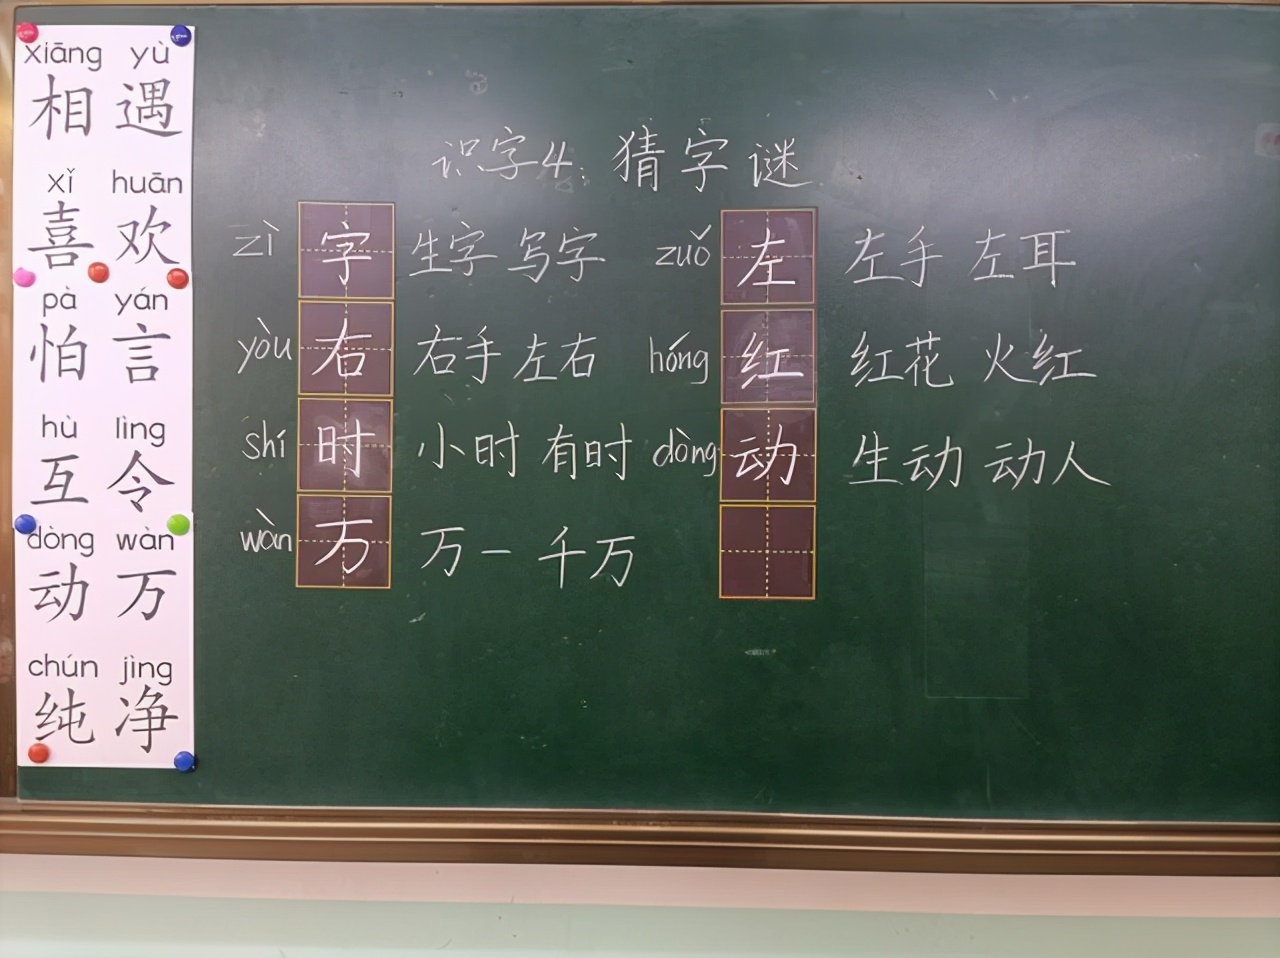 xiāng yù
相 遇
xǐ huān
喜 欢
pà yán
怕 言
hù lìng
互 令
dòng wàn
动 万
chún jìng
纯 净
识字4. 猜字谜
zì 字 生字 写字
yòu 右 右手 左右
shí 时 小时 有时
wàn 万 万一 千万
zuǒ 左 左手 左耳
hóng 红 红花 火红
dòng 动 生动 动人